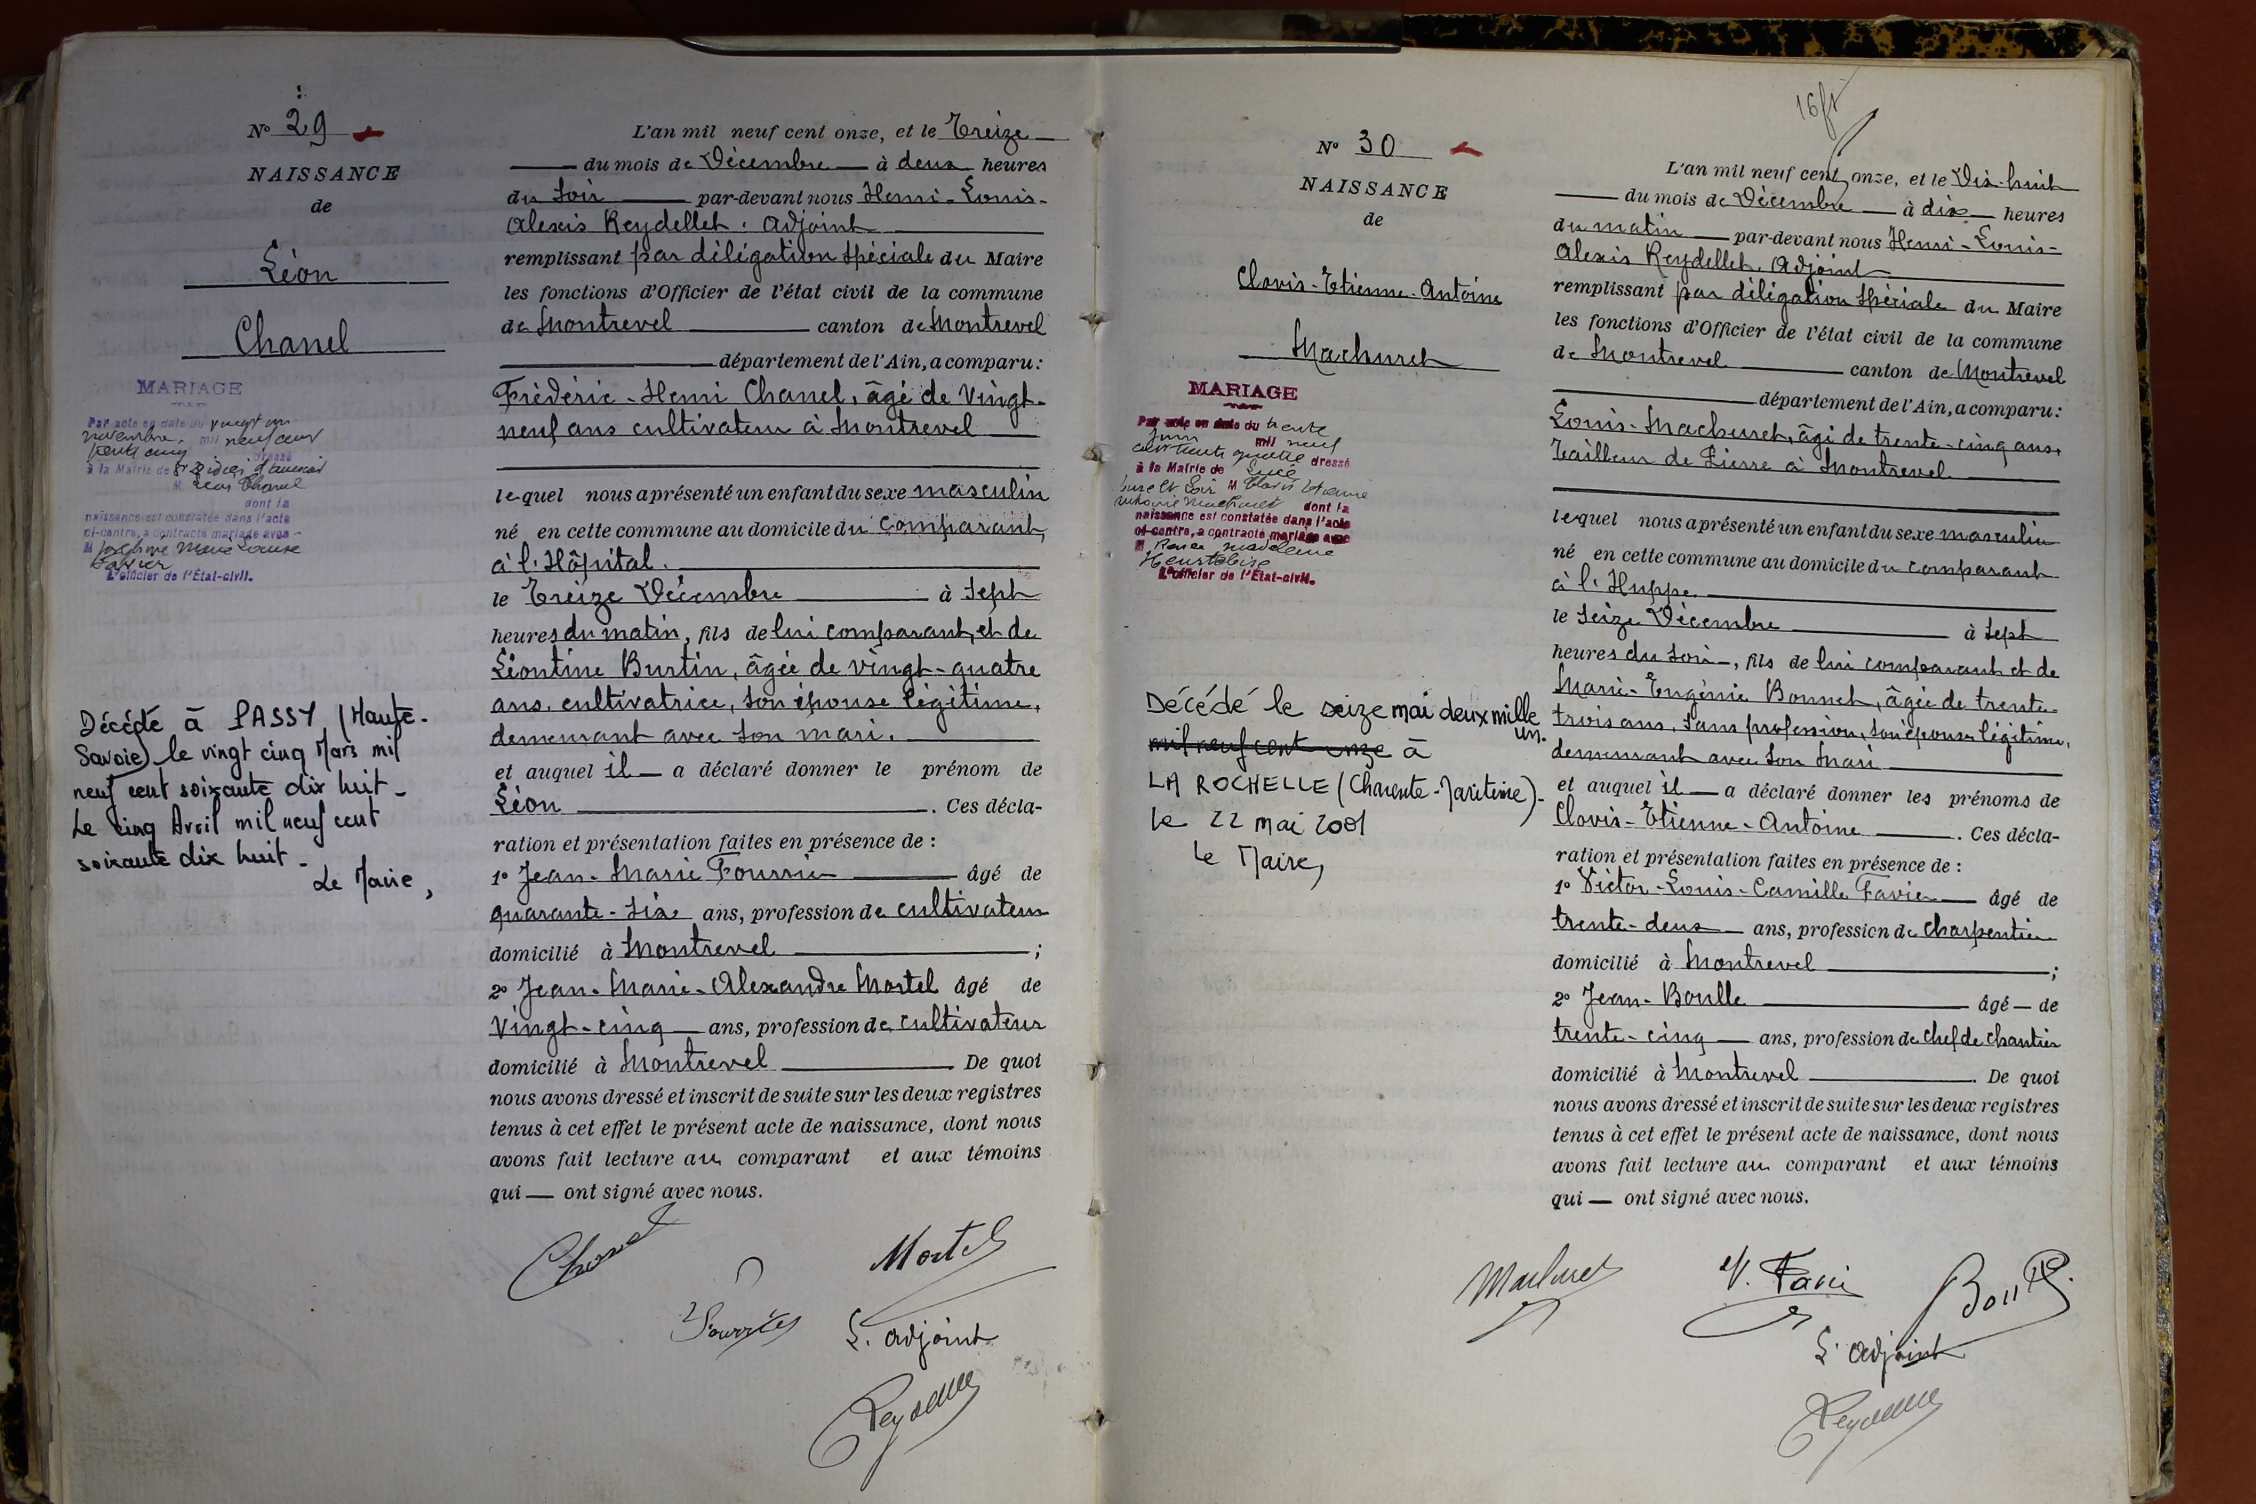 N° 29
NAISSANCE
de
Léon
Chanel
MARIAGE
Par acte en date du vingt un
novembre, mil neuf cent
trente cinq dressé
à la Mairie de St Didier d'aussiat
M Léon Chanel
dont la
naissance est constatée dans l'acte
ci-contre, a contracté mariage avec
M Joséphine Marie Louise
L'officier de l'État-civil.
Décédé à PASSY (Haute-
Savoie) le vingt cinq Mars mil
neuf cent soixante dix huit -
Le cinq Avril mil neuf cent
soixante dix huit -
Le Maire,
L'an mil neuf cent onze, et le Treize
du mois de Décembre à deux heures
du soir par-devant nous Henri-Louis-
Alexis Reydellet, Adjoint
remplissant par délégation spéciale du Maire
les fonctions d'Officier de l'état civil de la commune
de Montrevel canton de Montrevel
département de l'Ain, a comparu:
Frédéric-Henri Chanel, âgé de Vingt-
neuf ans cultivateur à Montrevel
lequel nous a présenté un enfant du sexe masculin
né en cette commune au domicile du comparant,
à l'Hôpital.
le Treize Décembre à sept
heures du matin, fils de lui comparant, et de
Léontine Burtin, âgée de vingt-quatre
ans, cultivatrice, son épouse légitime,
demeurant avec son mari.
et auquel il a déclaré donner le prénom de
Léon . Ces décla-
ration et présentation faites en présence de :
1° Jean-Marie Fourrier âgé de
quarante-six ans, profession de cultivateur
domicilié à Montrevel ;
2° Jean-Marie-Alexandre Mortel âgé de
Vingt-cinq ans, profession de cultivateur
domicilié à Montrevel De quoi
nous avons dressé et inscrit de suite sur les deux registres
tenus à cet effet le présent acte de naissance, dont nous
avons fait lecture au comparant et aux témoins
qui ont signé avec nous.
Chanel
Mortel
Fourrier
L'adjoint
Reydellet
16 fr
N° 30
NAISSANCE
de
Clovis-Etienne-Antoine
Machuret
MARIAGE
Par acte en date du trente
Juin mil neuf
cent trente quatre dressé
à la Mairie de Lucé
Eure et Loir M Clovis Etienne
Antoine Machuret dont la
naissance est constatée dans l'acte
ci-contre, a contracté mariage avec
M Renée Madeleine
Heurtebise
L'officier de l'État-civil.
Décédé le seize mai deux mille
un.
mil neuf cent onze à
LA ROCHELLE (Charente-Maritime).
Le 22 mai 2001
Le Maire,
L'an mil neuf cent onze, et le Dix-huit
du mois de Décembre à dix heures
du matin par-devant nous Henri-Louis-
Alexis Reydellet, Adjoint
remplissant par délégation spéciale du Maire
les fonctions d'Officier de l'état civil de la commune
de Montrevel canton de Montrevel
département de l'Ain, a comparu:
Louis-Machuret, âgé de trente-cinq ans,
Tailleur de Pierre à Montrevel
lequel nous a présenté un enfant du sexe masculin
né en cette commune au domicile du comparant
à l'Huppe.
le seize Décembre à sept
heures du soir, fils de lui comparant et de
Marie-Eugénie Bonnet, âgée de trente-
trois ans, sans profession, son épouse légitime,
demeurant avec son Mari
et auquel il a déclaré donner les prénoms de
Clovis-Etienne-Antoine . Ces décla-
ration et présentation faites en présence de :
1° Victor-Louis-Camille Favier âgé de
trente-deux ans, profession de charpentier
domicilié à Montrevel ;
2° Jean-Boulle âgé de
trente-cinq ans, profession de chef de chantier
domicilié à Montrevel . De quoi
nous avons dressé et inscrit de suite sur les deux registres
tenus à cet effet le présent acte de naissance, dont nous
avons fait lecture au comparant et aux témoins
qui ont signé avec nous.
Machuret
V. Favier
Boulle
L'adjoint
Reydellet